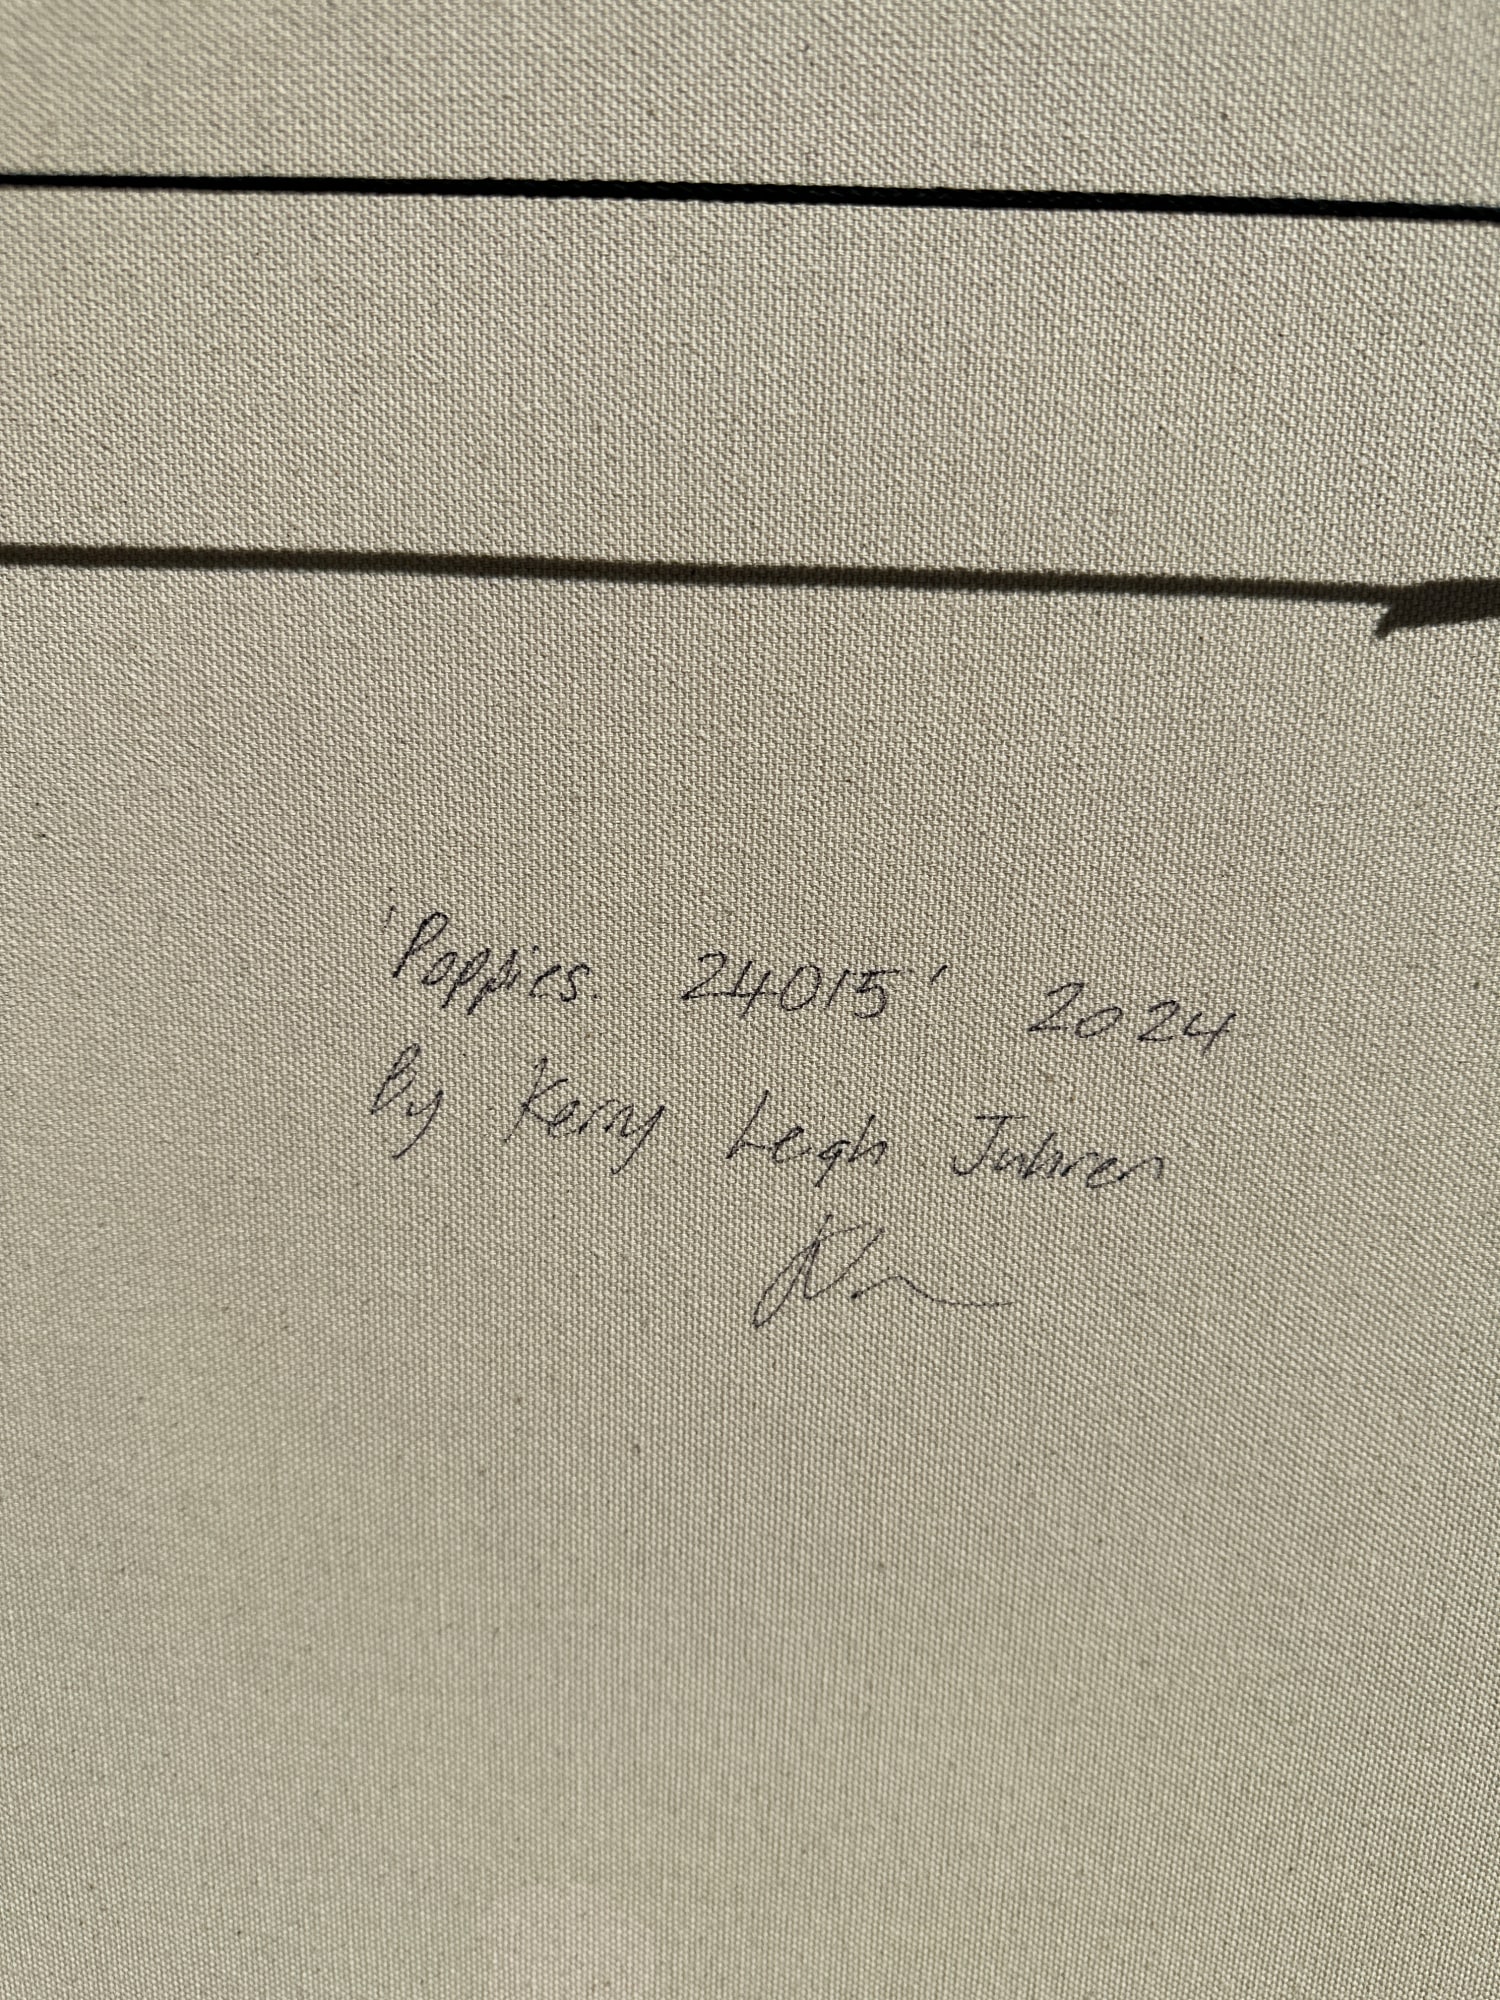 'Poppies 24015' 2024
By Kerry Leigh Juhren